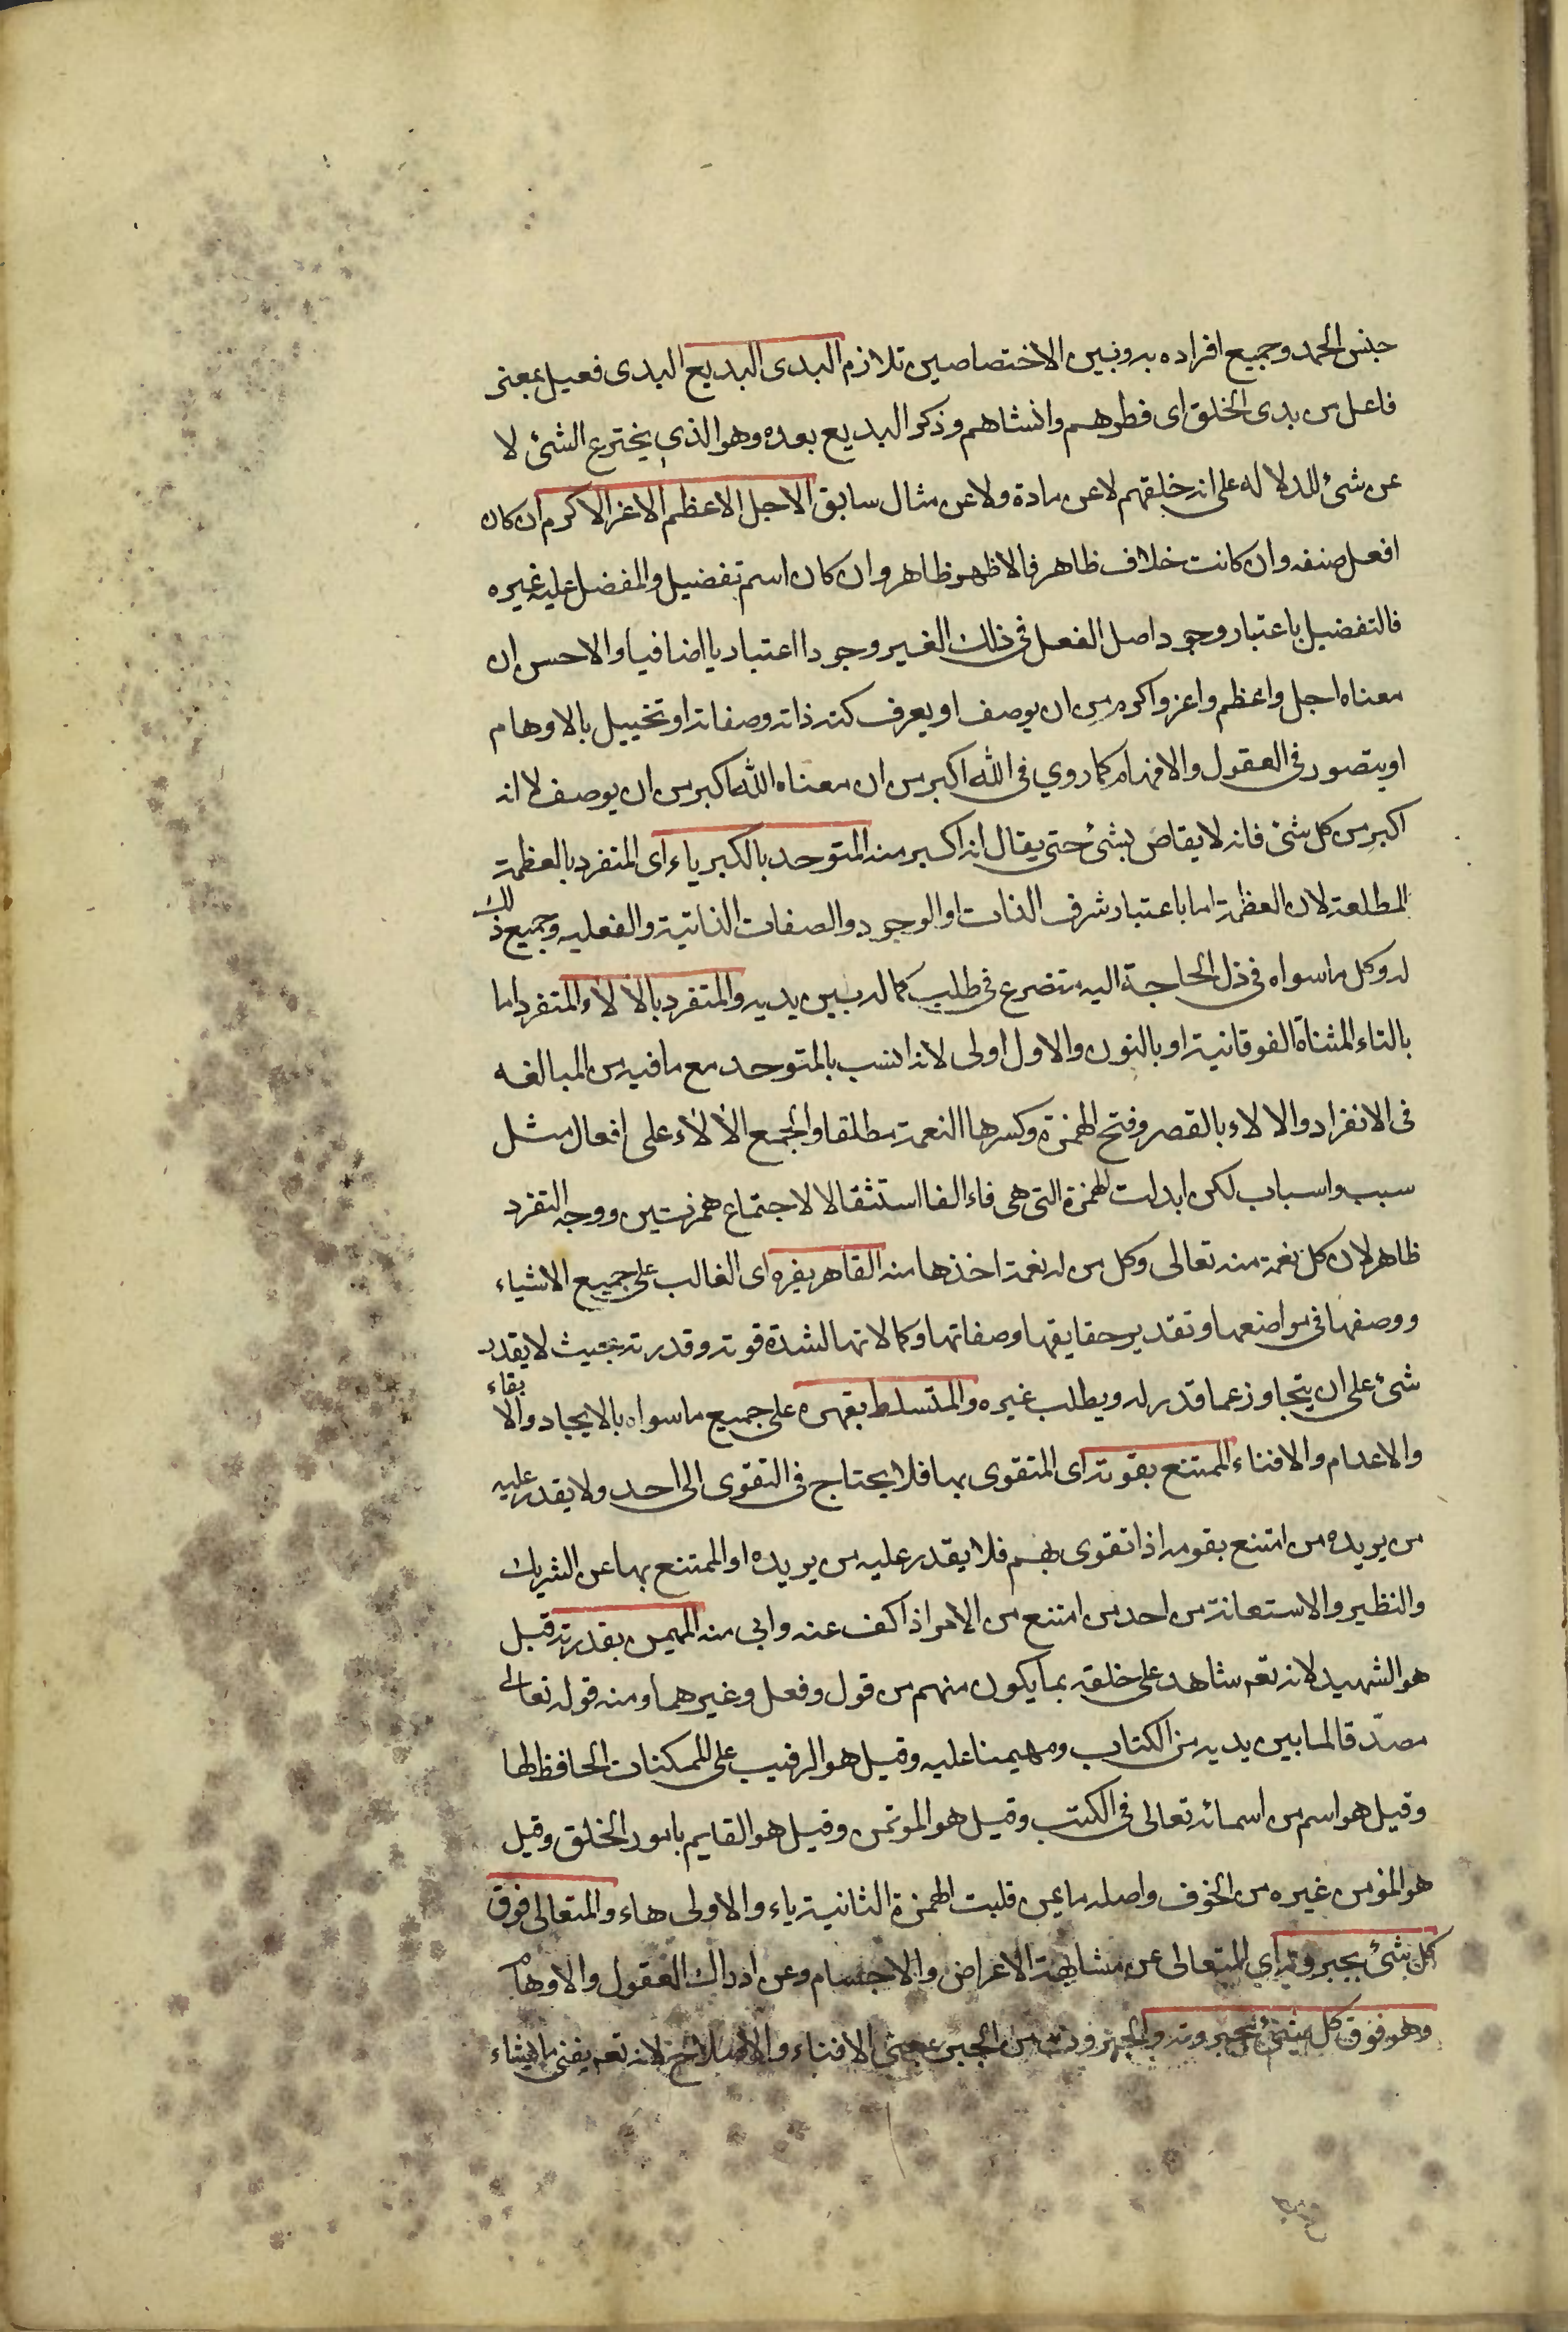 جنس الحمد وجميع افراده به وبين الاختصاصين تلازم البدى البديع البدى فعيل بمعنى
فاعل من بدى الخلق اى فطرهم وانشاهم وذكر البديع بعده وهو الذي يخترع الشئ لا
عن شئ للدلالة على انه خلقهم لا عن مادة ولا عن مثال سابق الاجل الاعظم الاعز الاكرم ان كان
افعل صفة وان كانت خلاف ظاهر فالاظهر ظاهر وان كان اسم تفضيل والمفضل عليه غيره
فالتفضيل باعتبار وجود اصل الفعل فى ذلك الغير وجودا اعتباريا اضافيا والاحسن ان
معناه اجل واعظم واعز واكرم من ان يوصف او يعرف كنه ذاته وصفاته او تخييل بالاوهام
او يتصور فى العقول والافهام كما روي فى الله اكبر من ان معناه الله اكبر من ان يوصف لا انه
اكبر من كل شئ فانه لا يقاس بشئ حتى يقال انه اكبر منه المتوحد بالكبرياء اى المنفرد بالعظمة
المطلعة لان العظمة اما باعتبار شرف الذات او الوجود والصفات الذاتية والفعلية وجميع ذلك
له وكل ما سواه فى ذل الحاجة اليه متضرع فى طلب كماله بين يديه والمتفرد بالالاء المتفرد اما
بالتاء المثناة الفوقانية او بالنون والاول اولى لانه انسب بالمتوحد مع ما فيه من المبالغه
فى الانفراد والالاء بالقصر وفتح الهمزة وكسرها النعمة مطلقا والجمع الالاء على افعال مثل
سبب واسباب لكن ابدلت الهمزة التى هى فاء الفا استثقالا لاجتماع همزتين ووجه التفرد
ظاهر لان كل نعمة منه تعالى وكل من له نعمة اخذها منه القاهر بقهره اى الغالب على جميع الاشياء
ووصفها فى مواضعها وتقدير حقايقها وصفاتها وكمالاتها لشدة قوته وقدرته بحيث لا يقدر
شئ على ان يتجاوز عما قدر له ويطلب غيره والمتسلط بقهره على جميع ما سواه بالايجاد والابقاء
والاعدام والافناء الممتنع بقوته اى المتقوى بها فلا يحتاج فى التقوى الى احد ولا يقدر عليه
من يريده من امتنع بقومه اذا تقوى بهم فلا يقدر عليه من يريده او الممتنع بها عن الشريك
والنظير والاستعانة من احد من امتنع من الامر اذا كف عنه وابى منه المهيمن بقدرته قيل
هو الشهيد لانه تعم شاهد على خلقه بما يكون منهم من قول وفعل وغيرهما ومنه قوله تعالى
مصدّقا لما بين يديه من الكتاب ومهيمنا عليه وقيل هو الرقيب على الممكنات الحافظ لها
وقيل هو اسم من اسمائه تعالى فى الكتب وقيل هو الموتمن وقيل هو القايم بامور الخلق وقيل
هو المؤمن غيره من الخوف واصله مايمن قلبت الهمزة الثانية ياء والاولى هاء والمتعالى فوق
كل شئ بجبروته اى المتعالى عن مشابهة الاعراض والاجسام وعن ادراك العقول والاوهام
وهو فوق كل شئ بجبروته والجبروت من الجبر بمعنى الافناء والاصلاح لانه تعم يفنى ما يشاء